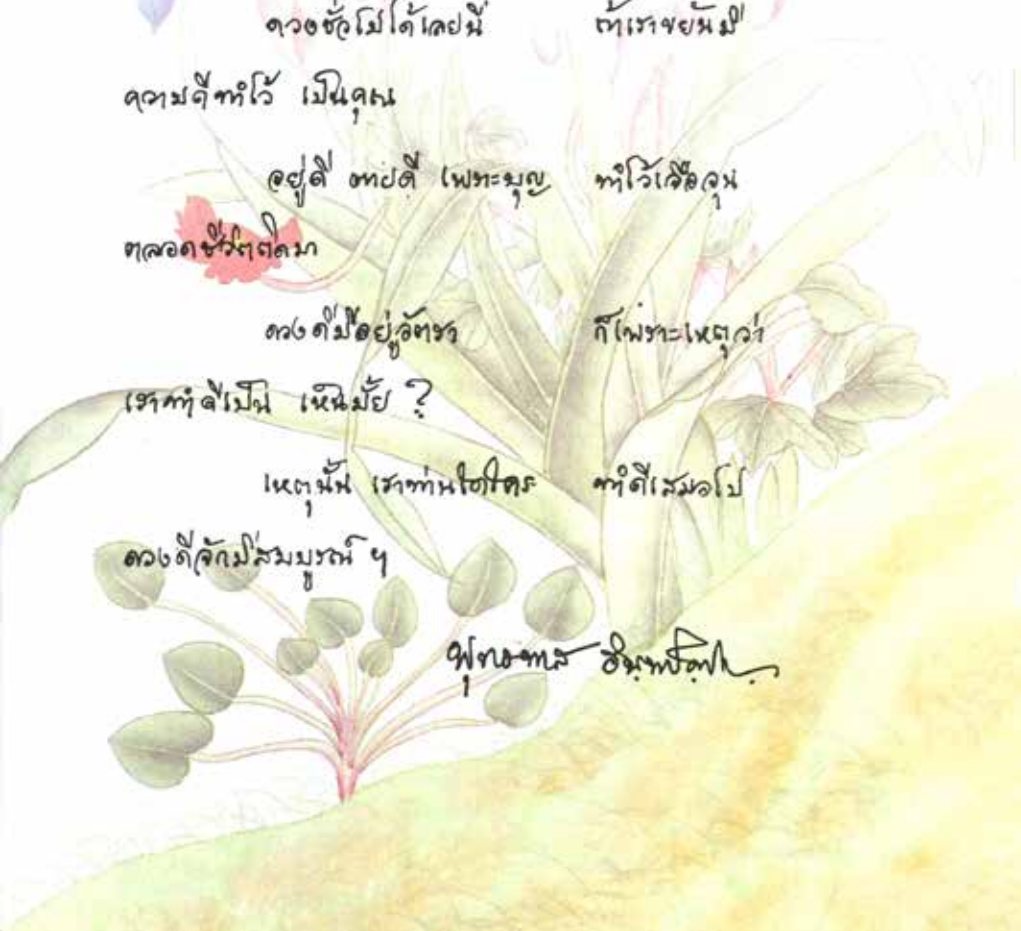 ดวงชั่วไม่ได้เลยนี่ ถ้าเราขยันมี
ความดีทำไว้ เป็นคุณ
อยู่ดี ตายดี เพราะบุญ ทำไว้เจือจุน
ตลอดชีวิตติดมา
ดวงดีมีอยู่อัตรา ก็เพราะเหตุว่า
เราทำดีเป็น เห็นมั้ย ?
เหตุนั้น เราท่านใดใคร ทำดีเสมอไป
ดวงดีจักมีสมบูรณ์ ฯ
พุทธทาส อินฺทปญฺโญ